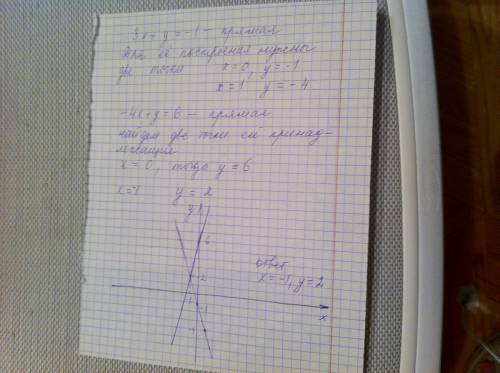 3x + y = -1 - прямая
Для её построения нужны
две точки x = 0, y = -1
x = 1 y = -4
-4x + y = 6 - прямая
найдем две точки ей принад-
лежащие
x = 0, тогда y = 6
x = -1 y = 2
y
6
2
-1
ответ
x = -1, y = 2
x